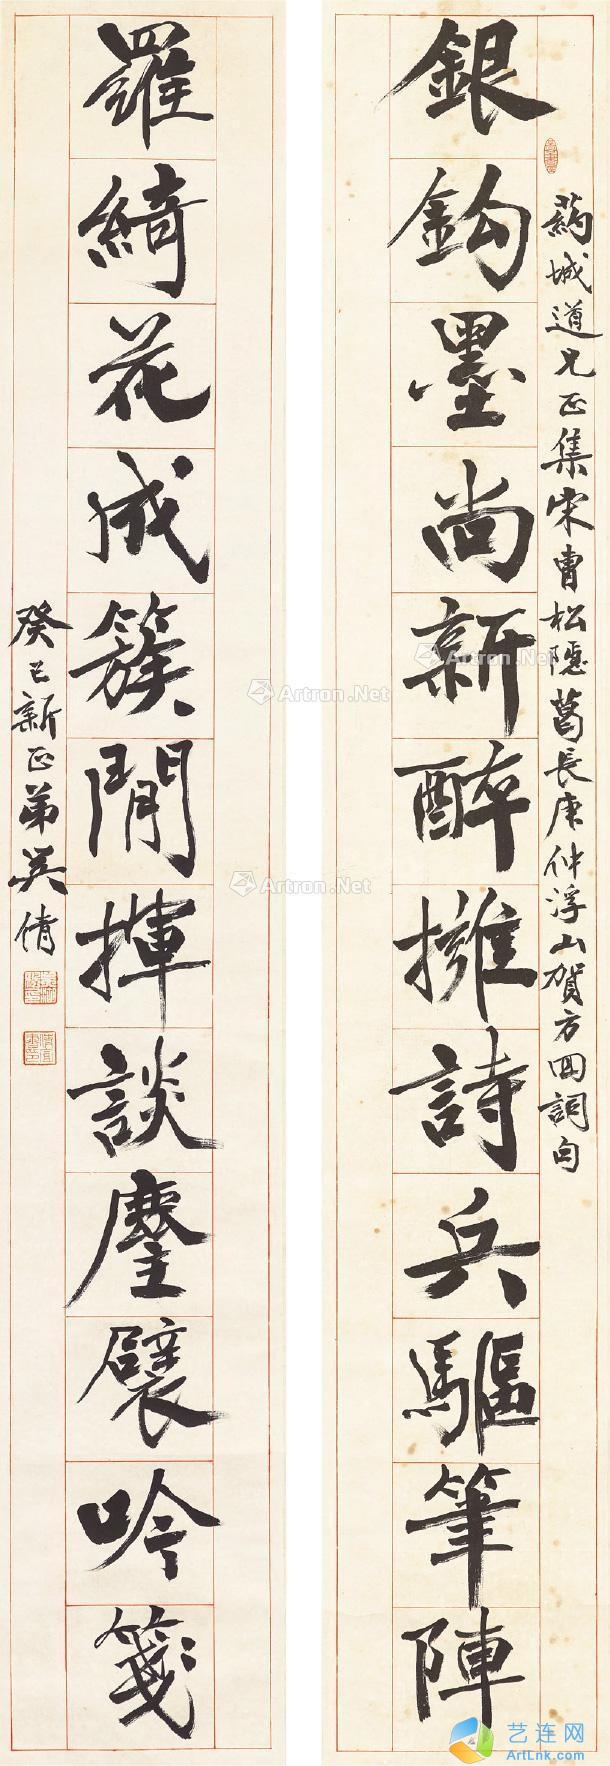 銀鈎墨尚新醉擁詩兵驅筆陣
葯城道兄正集宋曹松隱葛長庚仲浮山賀方回詞句
羅綺花成簇閒揮談麈襞吟箋
癸巳新正弟吳倩
Artron.Net
Artron.Net
Artron.Net
Artron.Net
艺连网
ArtLnk.com